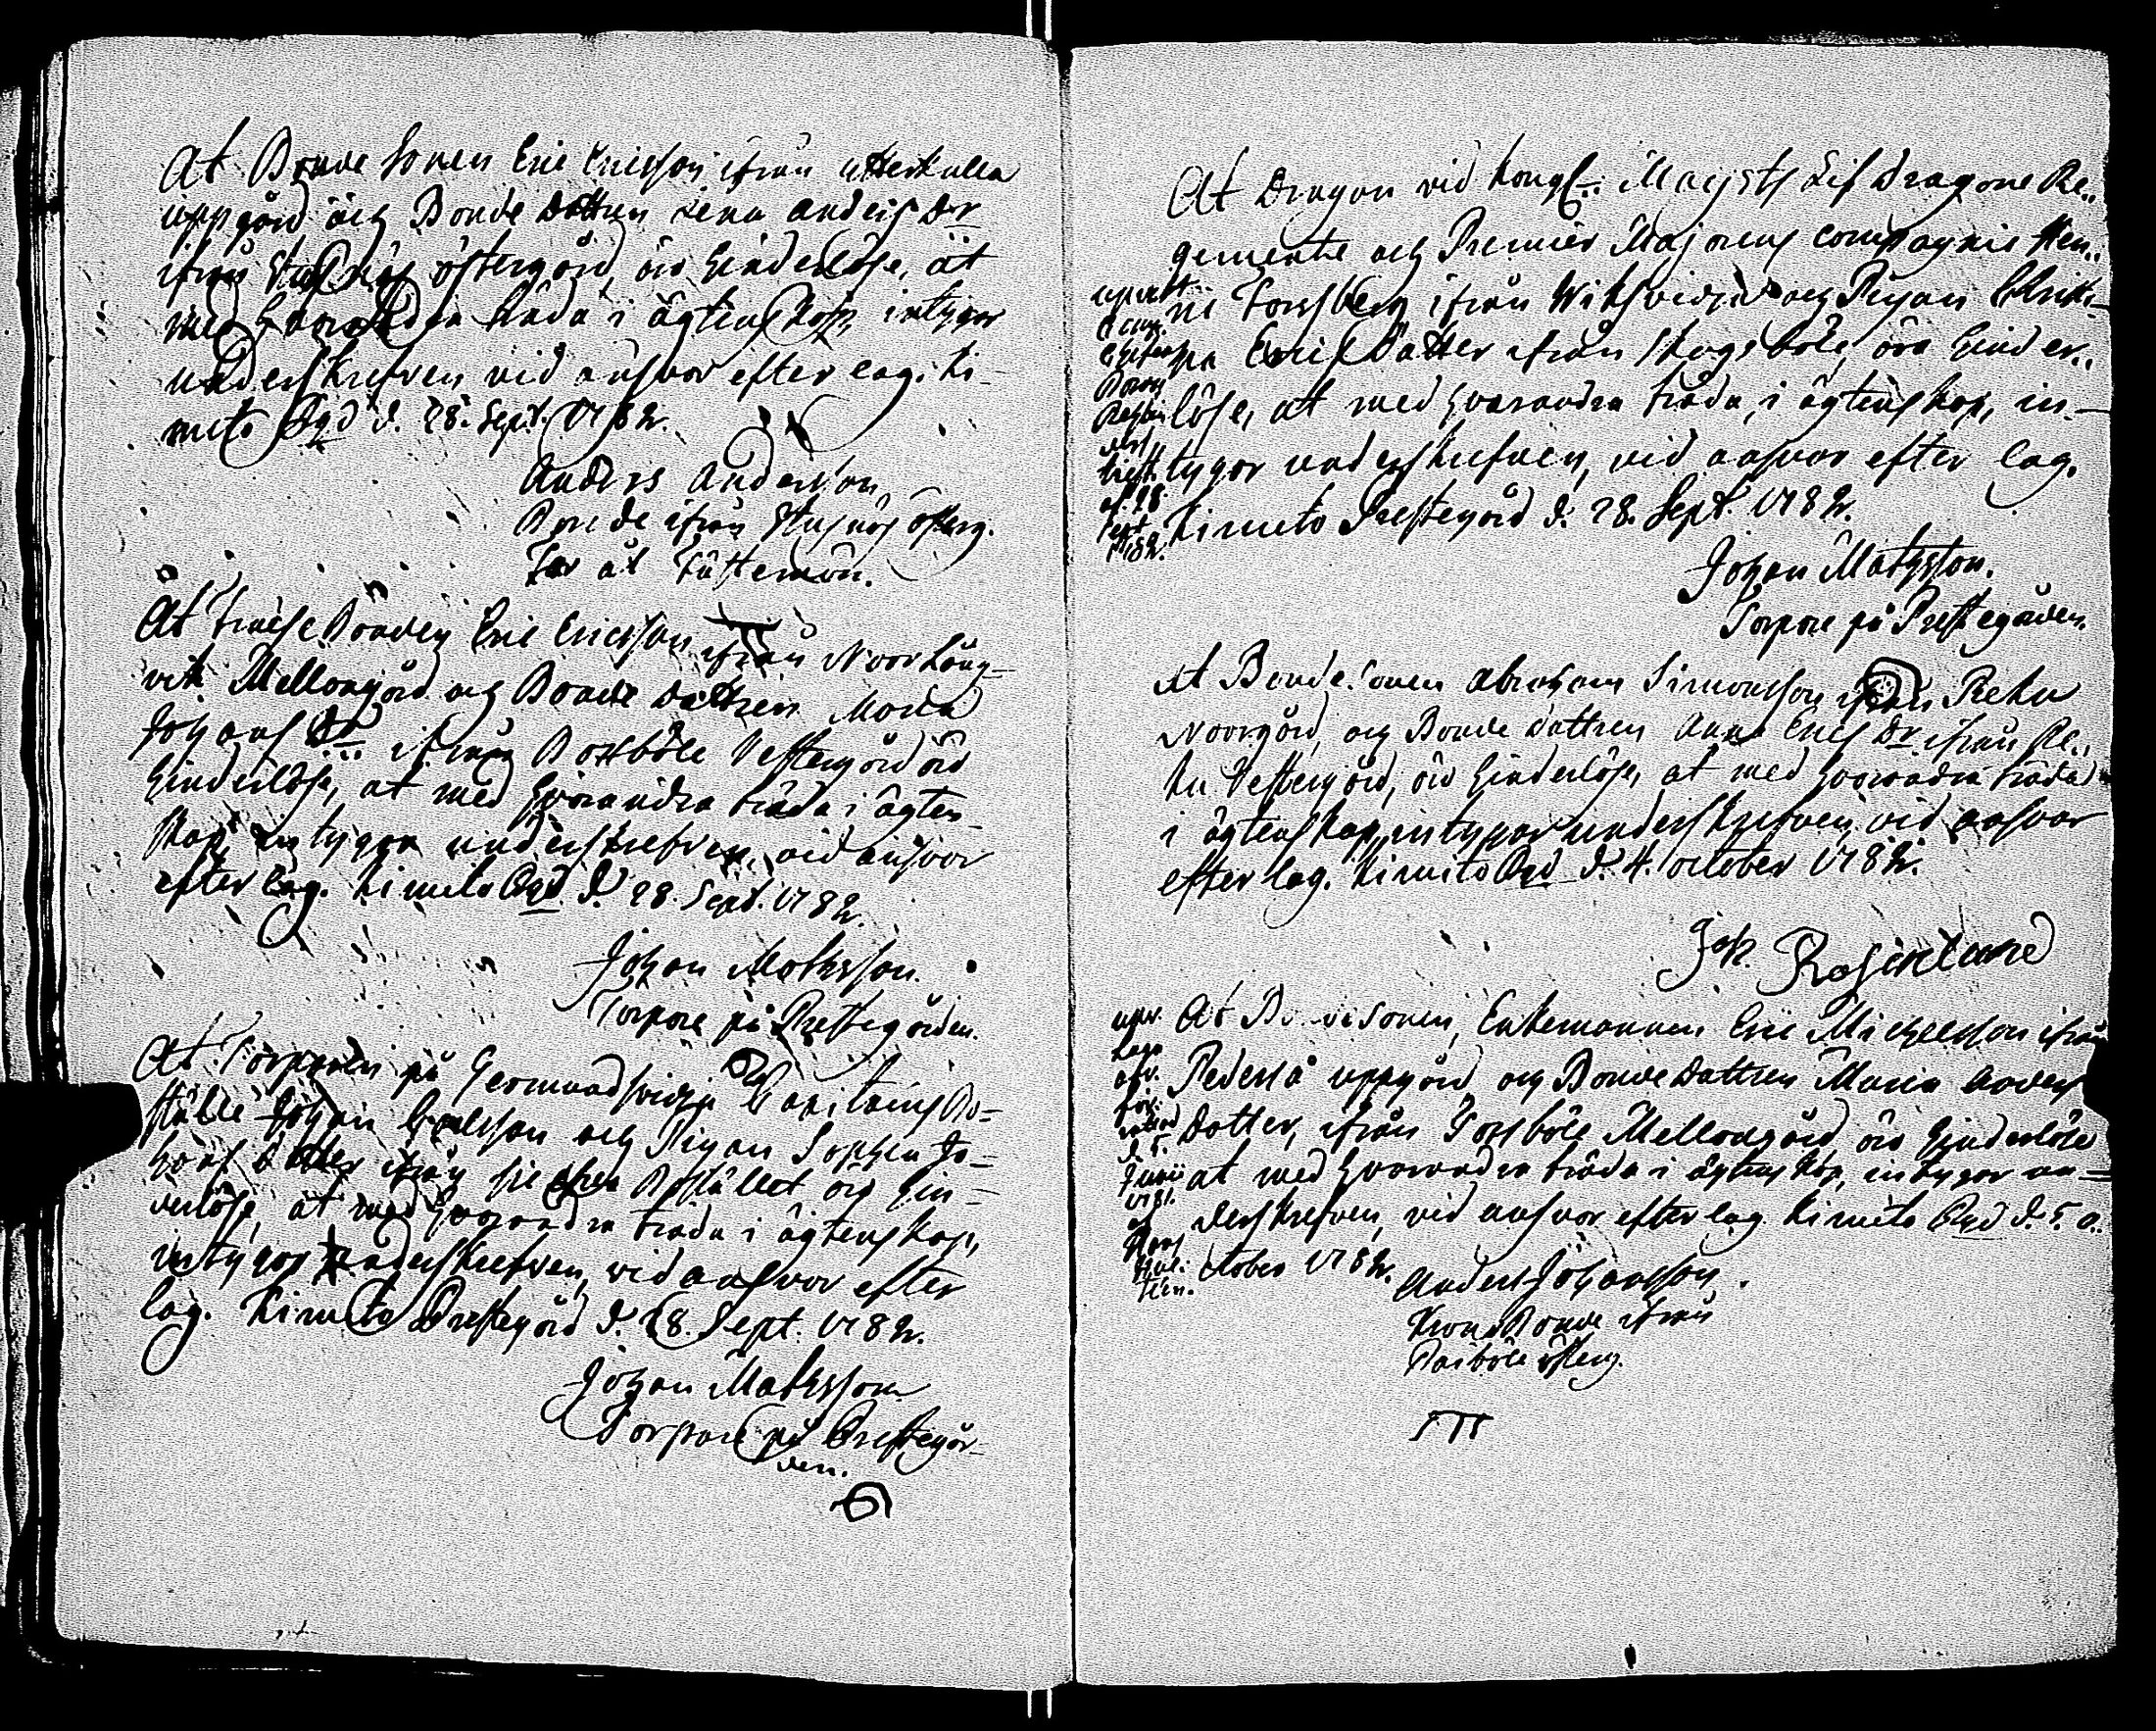 At Bonde Sonen Eric Ericsson ifrån utterkulla
uppgård och Bonde dottren Lena Anders Dr
ifrån Stusnäs östergård, äro hinderlöse, at
med hvarandra träda i ägtenskap, intygar
underskrefven vid ansvar efter lag. Ki-
mito Pgd d. 28. Sept. 1782.
Anders Andersson
Bonde ifrån Stusnäs österg.
Far åt Fästemön.
At Bonden Eric Ericsson ifrån Norrlång-
vik Mellongård och Bonde dottren Maria
Johans Dr ifrån Bottböle Vestergård äro
hinderlöse, at med hvarandra träda i ägten-
skap, intygar underskrefven, vid ansvar
efter lag. Kimito Pgd d. 28. Sept. 1782.
Johan Matsson.
Torpare på Prestegården.
At Torparen på Germundsvidja Capitains Bo-
ställe Johan Carlsson och Pigan Sophia Jo-
hans dotter ifrån Bostället äro hin-
derlöse, at med hvarandra träda i ägtenskap,
intygar underskrefven, vid answar efter
lag. Kimito Prestegård d. 28. Sept. 1782.
Johan Matsson
Torpare på Prestegår-
den.
At Dragon vid Kongl: Majsts Lif Dragone Re-
gemente och Premier Majorens compagnie Hen-
ric Forsberg ifrån Viksvidja och Pigan Chris-
na Erics Dotter ifrån Skogsböle, äro hinder-
löse, at med hvarandra träda, i ägtenskap, in-
tygar underskrefven, vid ansvar efter lag.
Kimito Prestegård d. 28. Sept. 1782.
af 28
Sept
1782.
Johan Matsson.
Torpare på Prestegården.
At Bonde Sonen Abraham Simonsson ifrån Reku
Norrgård, och Bonde dottren Anna Erics Dr ifrån Re-
ku Vestergård, äro hinderlöse, at med hvarandra träda
i ägtenskap, intygar underskrefven vid ansvar
efter lag. Kimito Pgd d. 4. october 1782.
Joh. Rosenlund
At Bondesonen, Enkemannen Eric Michelsson ifrån
Pederså uppgård och Bonde dottren Maria Anders
dotter, ifrån Mellongård äro hinderlöse
at med hvarandra träda i ägtenskap, intygar un-
derskrefven, vid ansvar efter lag. Kimito Pgd d. 5. o-
ctober 1782.
d. 5.
Junii
1781.
Anders Johansson.
Krono Bonde ifrån
österg.